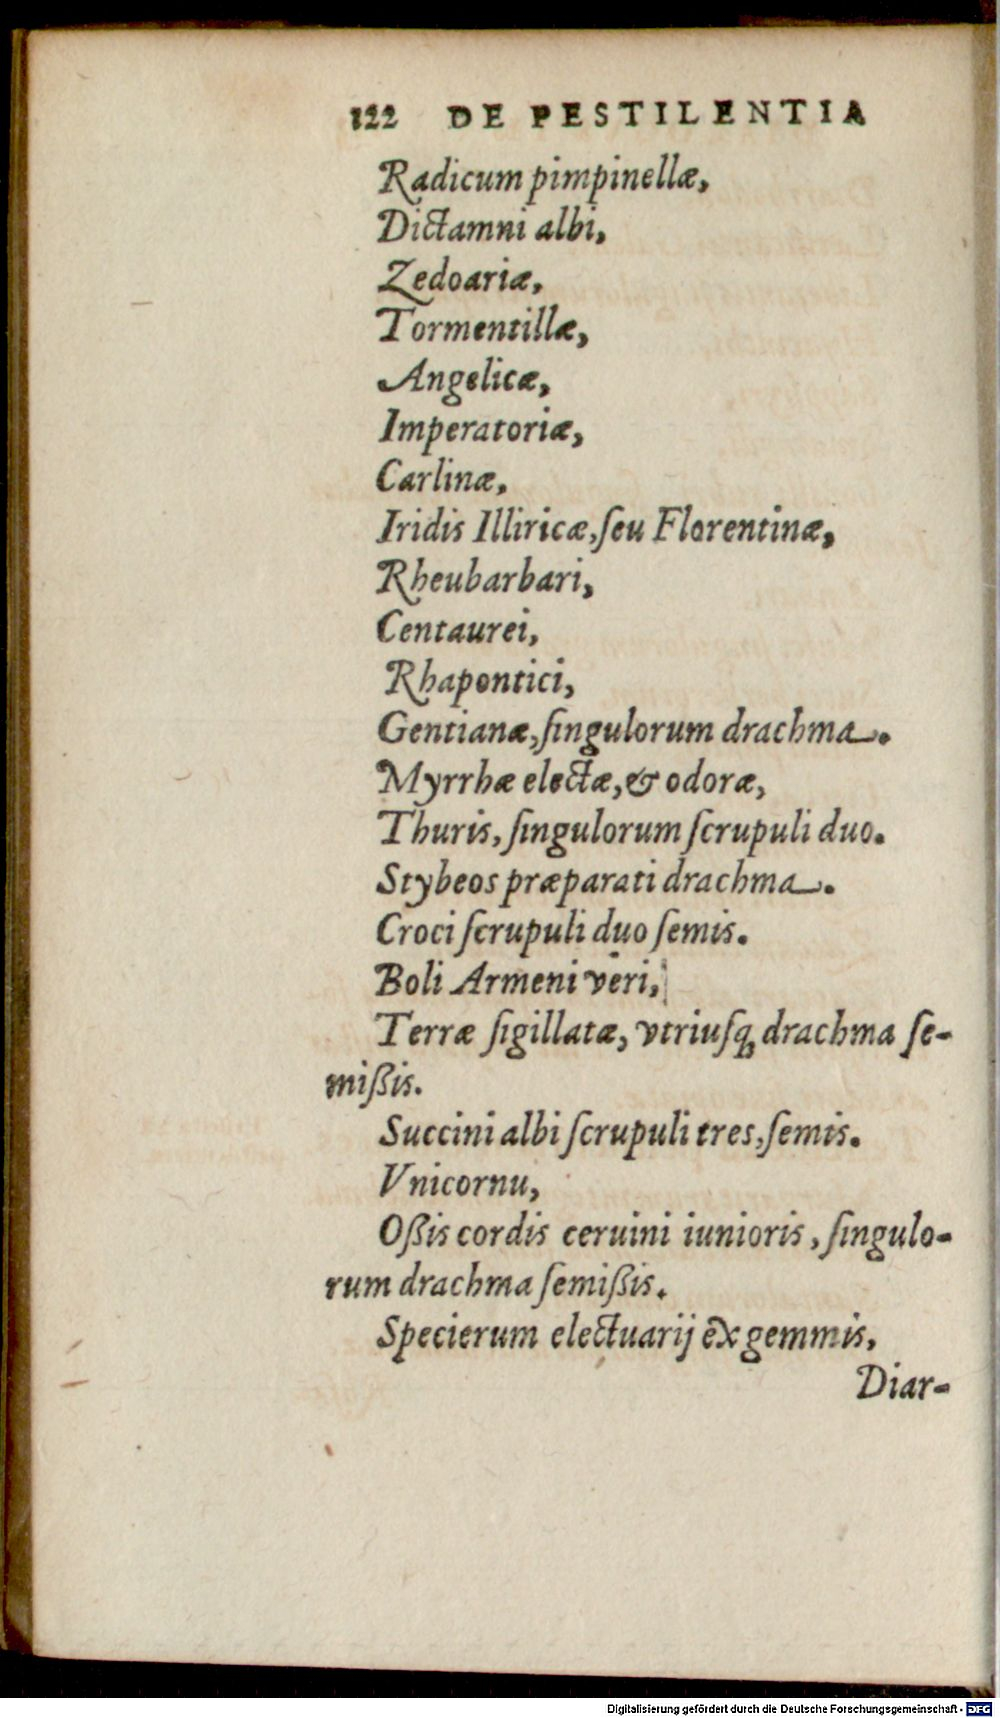 122 DE PESTILENTIA
Radicum pimpinellæ,
Dictamni albi,
Zedoariæ,
Tormentillæ,
Angelicæ,
Imperatoriæ,
Carlinæ,
Iridis Illiricæ, ſeu Florentinæ,
Rheubarbari,
Centaurei,
Rhapontici,
Gentianæ, ſingulorum drachma.
Myrrhæ electæ, & odoræ,
Thuris, ſingulorum ſcrupuli duo.
Stybeos præparati drachma.
Croci ſcrupuli duo ſemis.
Boli Armeni veri,
Terræ ſigillatæ, vtriuſq; drachma ſe-
mißis.
Succini albi ſcrupuli tres, ſemis.
Vnicornu,
Oßis cordis ceruini iunioris, ſingulo-
rum drachma ſemißis.
Specierum electuarij ex gemmis,
Diar-
Digitalisierung gefördert durch die Deutsche Forschungsgemeinschaft - DFG